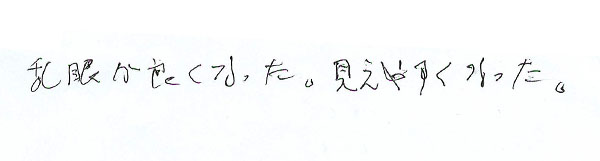 乱眼が良くなった。見えやすくなった。